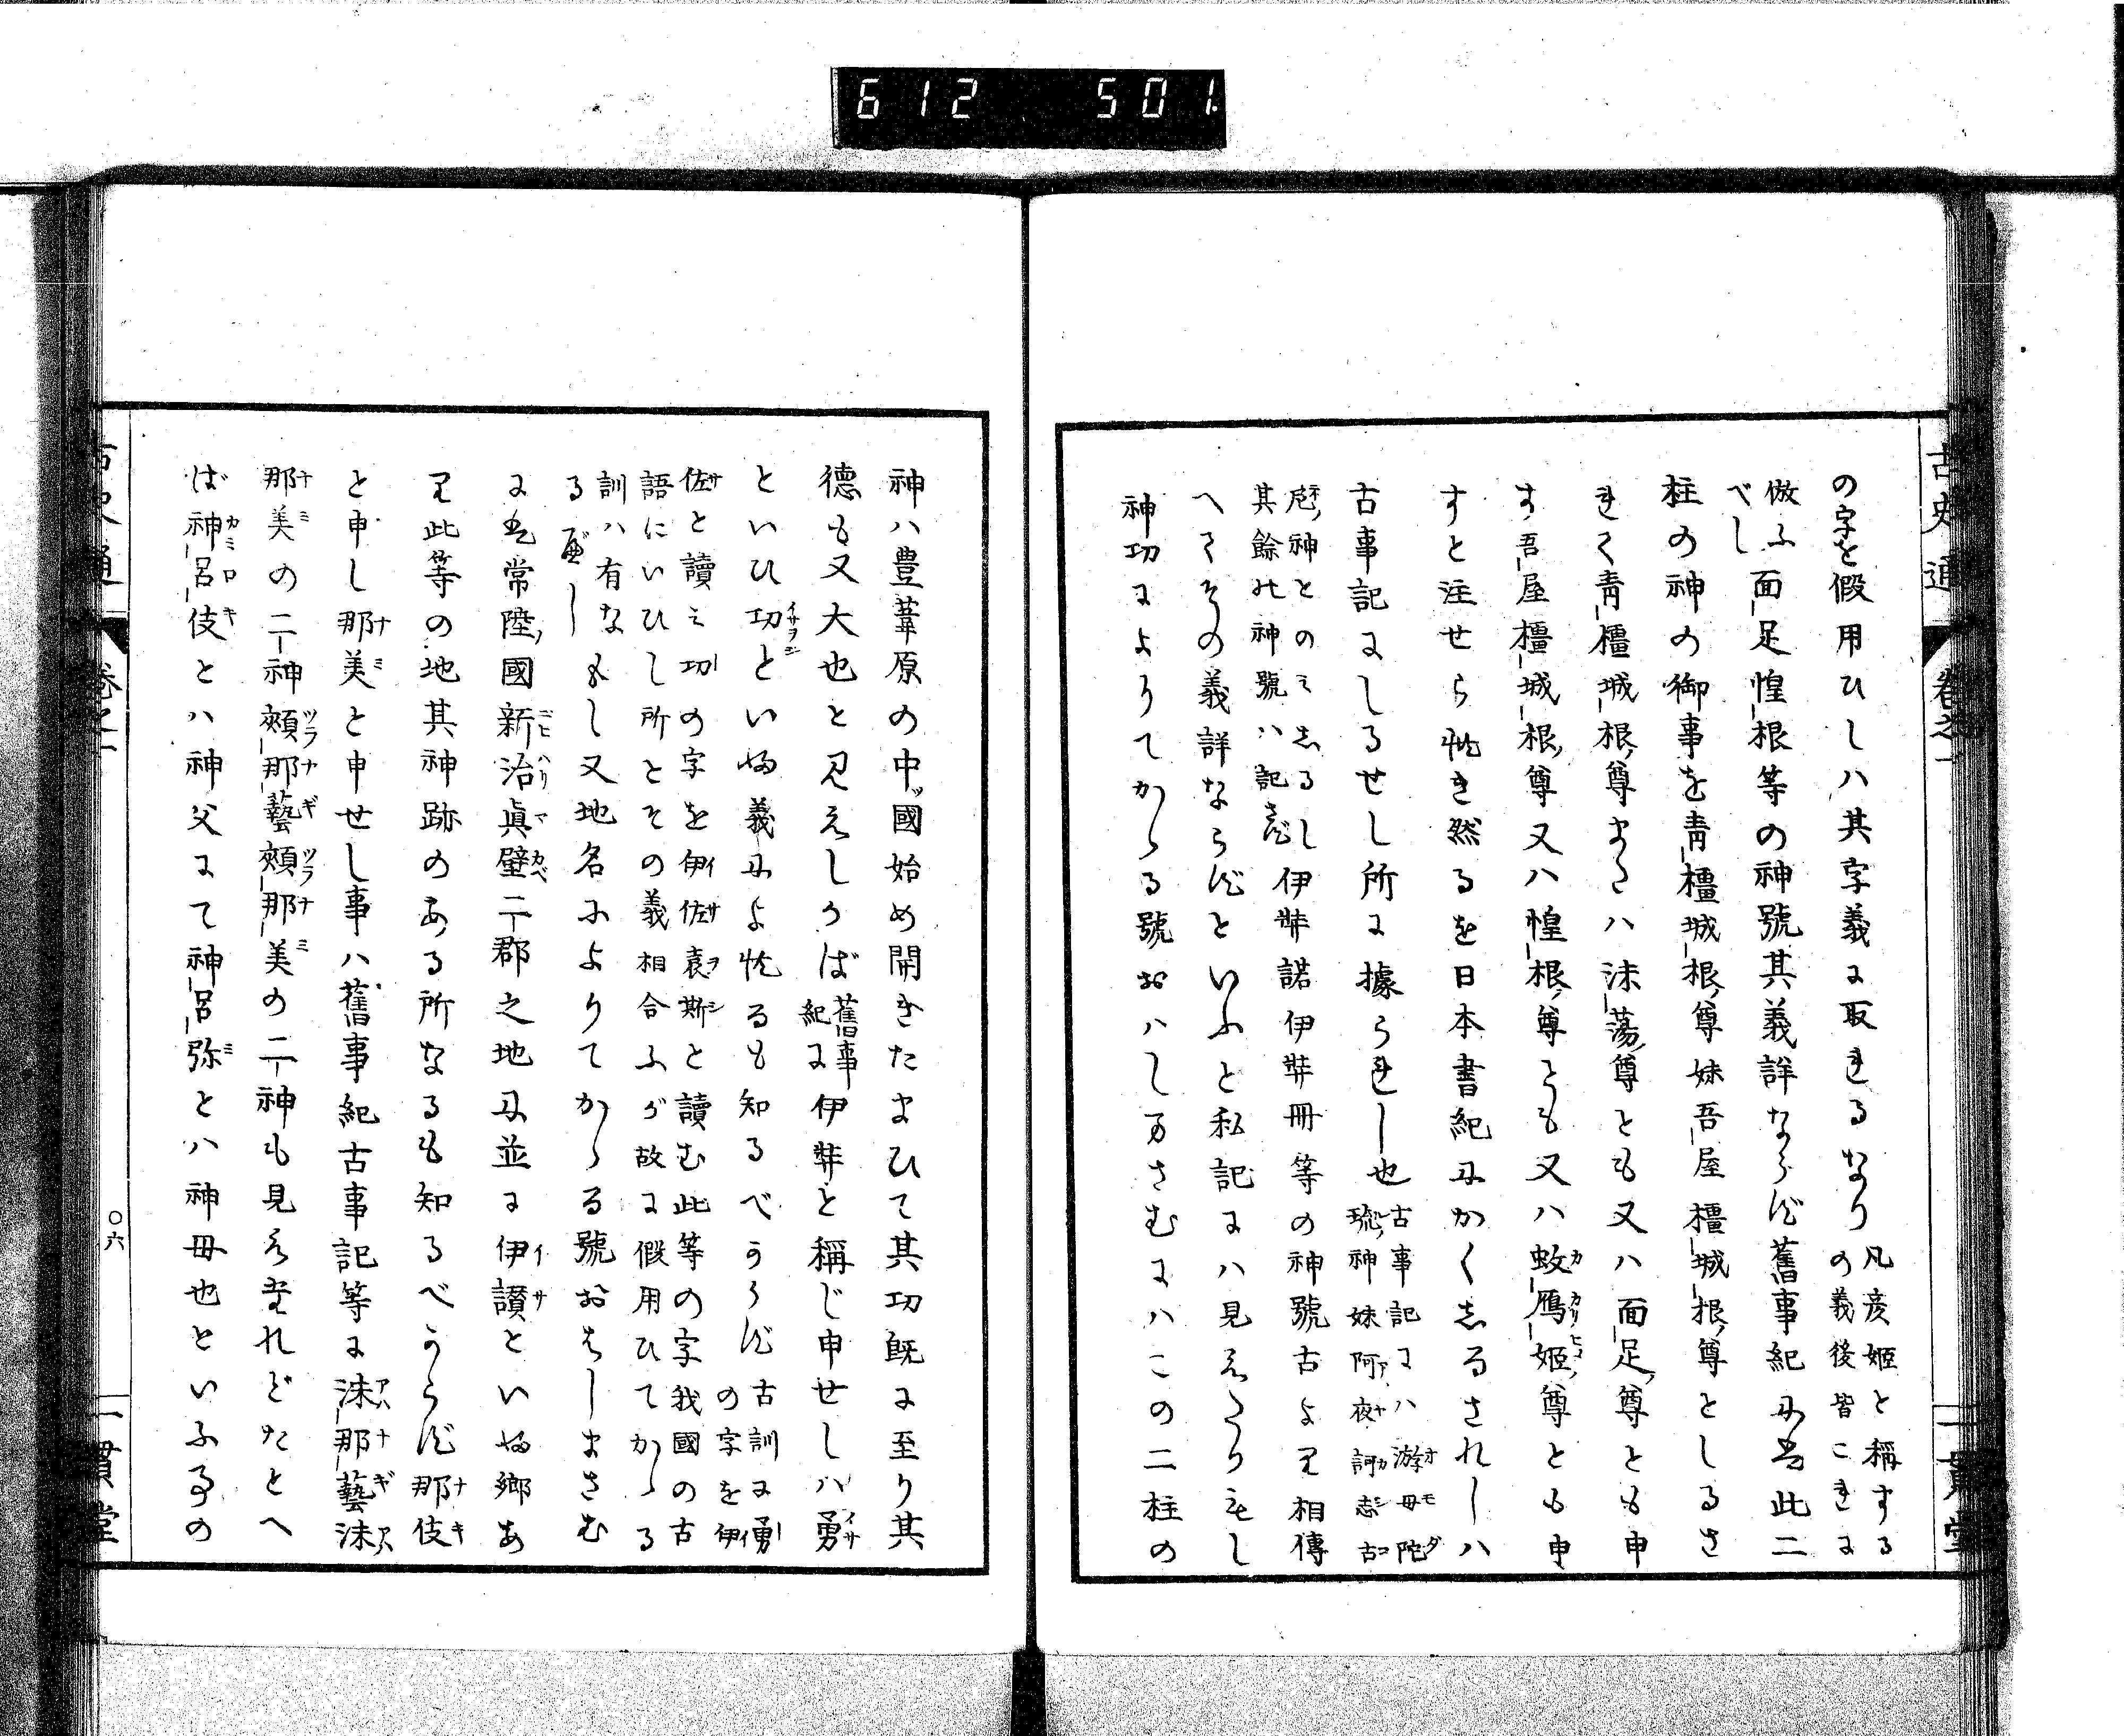 612 501
古史通 卷之一 一貫堂
の字を假用ひしハ其字義に取れるなり 凡彦姫と稱する
の義後皆これに
倣ふ
べし 面足惶根等の神號其義詳ならず舊事紀には此二
柱の神の御事を靑橿城根尊妹吾屋橿城根尊としるさ
れて靑橿城根尊またハ沫蕩尊とも又ハ面足尊とも申
す吾屋橿城根尊又ハ惶根尊とも又ハ蚊鴈姫尊とも申
すと注せられき然るを日本書紀にかくしるされしハ
古事記にしるせし所に據られし也 古事記にハ游母陀
琉神妹阿夜訶志古
泥神とのみしるし
其餘の神號ハ記さず 伊弉諾伊弉冊等の神號古より相傳
へてその義詳ならずといふと私記にハ見えたりもし
神功によりてかゝる號おハしまさむにハこの二柱の
神ハ豊葦原の中ッ國始め開きたまひて其功既に至り其
德も又大也と見えしかば 舊事
紀に 伊弉と稱じ申せしハ勇イサ
といひ功イサヲシといふ義によれるも知るべからず 古訓に勇
の字を伊
佐と讀み功の字を伊佐袁斯と讀む此等の字我國の古
語にいひし所とその義相合ふが故に假用ひてかゝる
訓ハ有な
るべし もし又地名によりてかゝる號おはしまさむ
には常陸ノ國新治ニヒハリ眞壁マカベ二郡之地に並に伊讃イサといふ郷あ
り此等の地其神跡のある所なるも知るべからず那伎ナキ
と申し那美ナミと申せし事ハ舊事紀古事記等に沫那藝アハナギ沫アハ
那美ナミの二神頰那藝ツラナギ頰那美ツラナミの二神も見えたれどたとへ
ば神呂伎カミロキとハ神父にて神呂弥ミとハ神母也といふ事の
古史通 卷之一 〇六 一貫堂